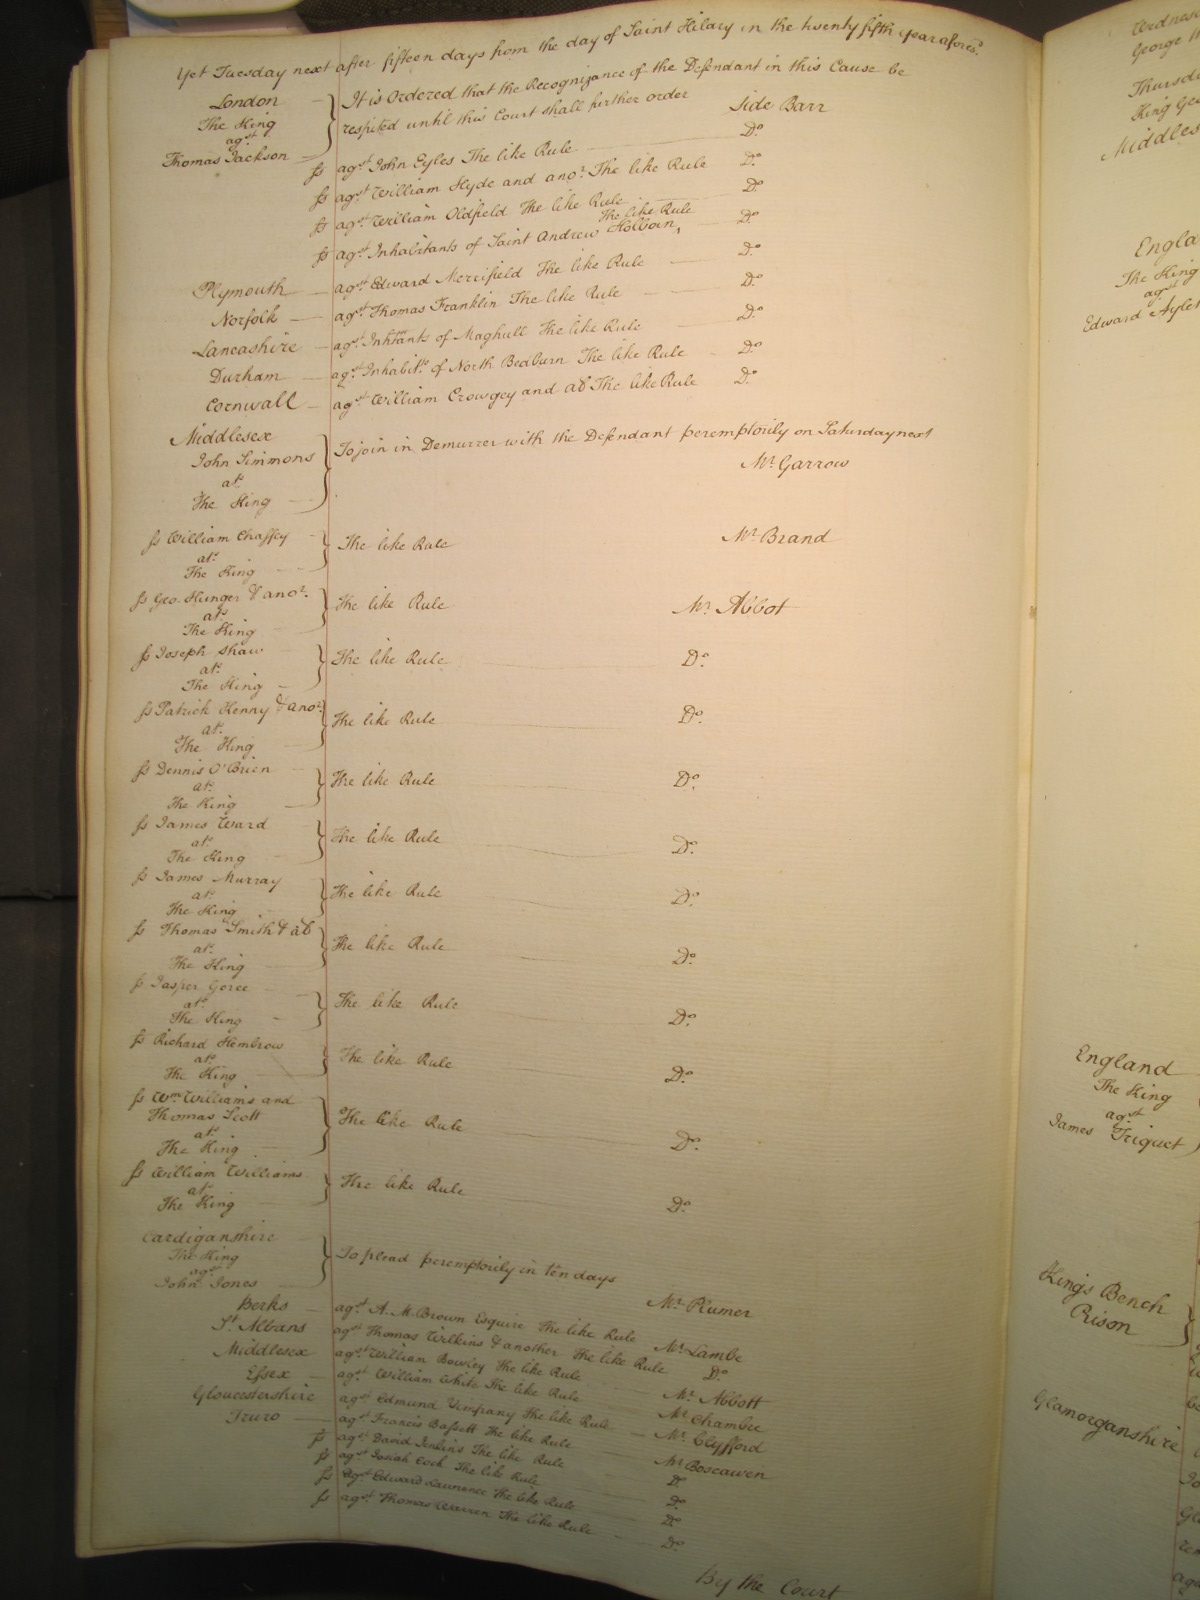 Yet Tuesday next after fifteen days from the day of Saint Hilary in the twenty fifth year afores.d
London
The King
ag.st
Thomas Jackson
It is Ordered that the Recognizance of the Defendant in this Cause be
respited until this Court shall further order Side Barr
ss ag.st John Eyles The like Rule D.o
ss ag.st William Hyde and ano.r The like Rule D.o
ss ag.st William Oldfield The like Rule D.o
ss ag.st Inhabitants of Saint Andrew Holborn, The like Rule D.o
Plymouth ag.st Edward Merrifield The like Rule D.o
Norfolk ag.st Thomas Franklin The like Rule D.o
Lancashire ag.st Inhitants of Maghull The like Rule D.o
Durham ag.st Inhabit.ts of North Bedburn The like Rule D.o
Cornwall ag.st William Crowgey and al The like Rule D.o
Middlesex
John Simmons
at.s
The King
To join in Demurrer with the Defendant peremptorily on Saturday next
Mr. Garrow
ss William Chaffey
at.s
The King
The like Rule Mr. Brand
ss Geo. Hunger & ano.r
at.s
The King
The like Rule Mr. Abbot
ss Joseph Shaw
at.s
The King
The like Rule D.o
ss Patrick Kenny & ano.r
at.s
The King
The like Rule D.o
ss Dennis O'Brien
at.s
The King
The like Rule D.o
ss James Ward
at.s
The King
The like Rule D.o
ss James Murray
at.s
The King
The like Rule D.o
ss Thomas Smith & al
at.s
The King
The like Rule D.o
ss Jasper Goree
at.s
The King
The like Rule D.o
ss Richard Hembrow
at.s
The King
The like Rule D.o
ss Wm. Williams and
Thomas Scott
at.s
The King
The like Rule D.o
ss William Williams
at.s
The King
The like Rule D.o
Cardiganshire
The King
ag.st
John Jones
To plead peremptorily in ten days
Mr. Plumer
Berks ag.st A. M. Brown Esquire The like Rule Mr. Lambe
St. Albans ag.st Thomas Wilkins & another The like Rule D.o
Middlesex ag.st William Bowley The like Rule Mr. Abbott
Essex ag.st William White The like Rule Mr. Chambre
Gloucestershire ag.st Edmund Vimpany The like Rule Mr. Clyfford
Truro ag.st Francis Bassett The like Rule Mr. Boscawen
ss ag.st David Jenkins The like Rule D.o
ss ag.st Josiah Cock The like Rule D.o
ss ag.st Edward Lawrence The like Rule D.o
ss ag.st Thomas Warren The like Rule D.o
By the Court
George
Thursd
King Geo
Middles
Engla
The King
ag.st
Edward Ayle
England
The King
ag.st
James Triquet
Kings Bench
Prison
Glamorganshire